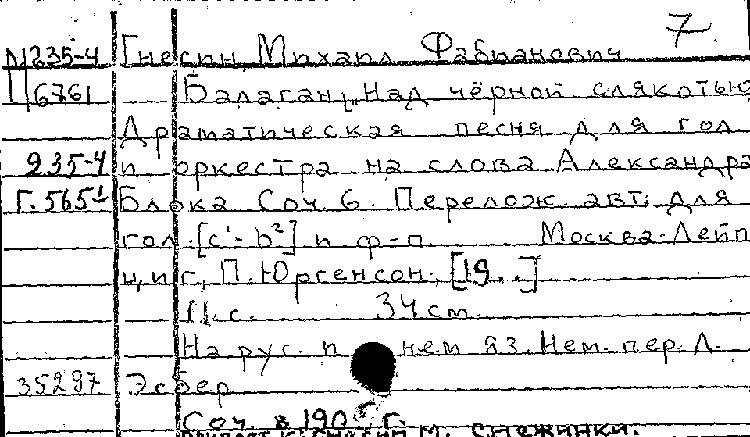 7
М235-4 Гнесин, Михаил Фабианович
П6761 Балаган, Над чёрной слякотью
Драматическая песня для гол
235-4 и оркестра на слова Александра
Г.565 Блока Соч 6. Перелож. авт. для
гол. [c¹-b²] и ф-п Москва-Лейп
циг, П. Юргенсон. [19..]
11 с. 34 см
На рус. и нем яз. Нем. пер. Л.
35297 Эсбер
Соч. в 190 г.
М. Снежинки.